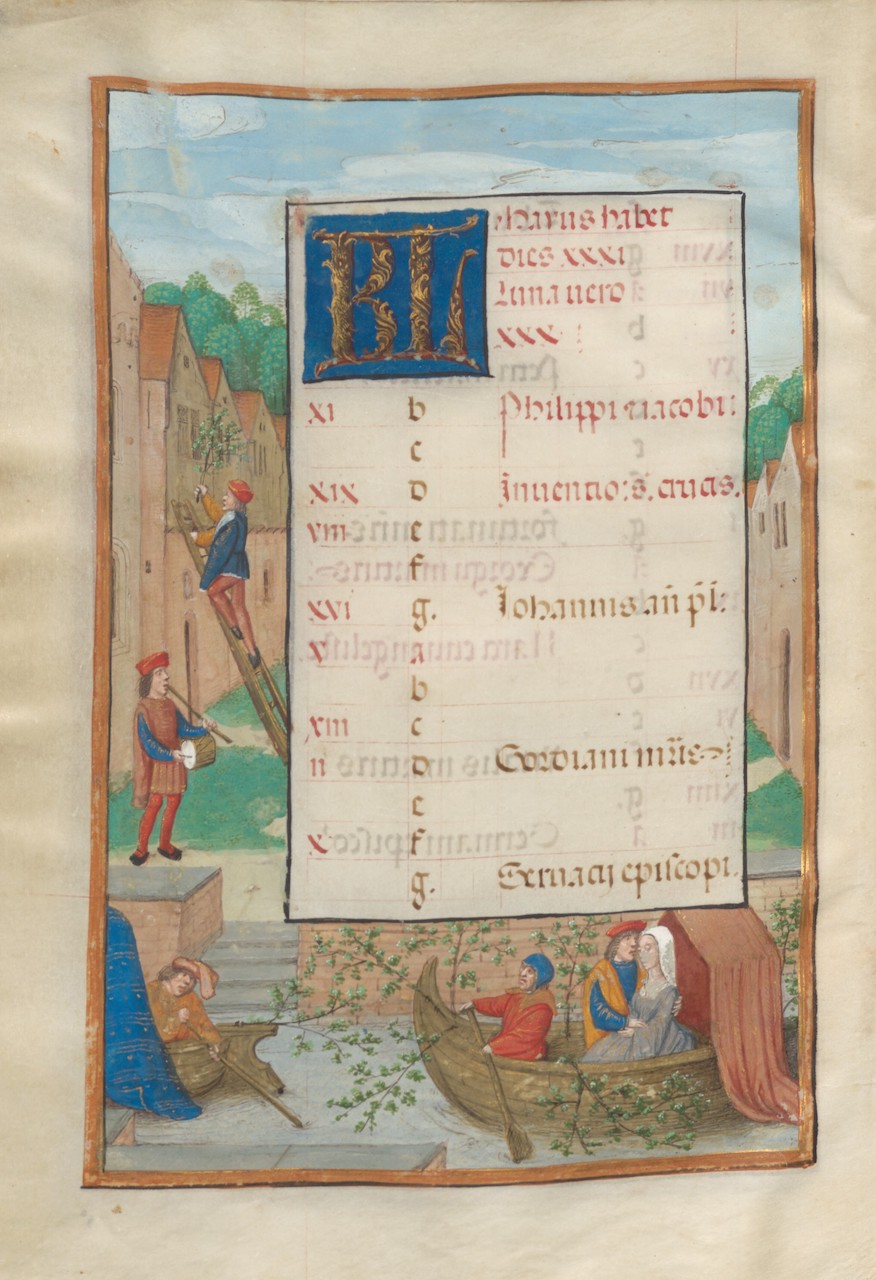 KL Mayus habet
dies xxxi
Luna uero
xxx :
xi b Philippi et iacobi:
c
xix d Inuentio: s. crucis.
viii e
f
xvi g. Iohannis an̄ p̄l:
v a
b
xiii c
ii d Gordiani mr̄is
e
x f
g. Seruacij episcopi.